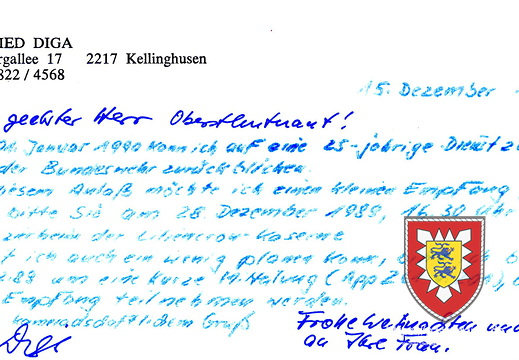 MED DIGA
rgallee 17 2217 Kellinghusen
822 / 4568
15. Dezember
geehrter Herr Oberstleutnant!
01. Januar 1990 kann ich auf eine 25-jährige Dienstz
der Bundeswehr zurückblicken.
diesem Anlaß möchte ich einen kleinen Empfang
bitte Sie am 28. Dezember 1989, 16.30 Uhr
der Liliencron Kaserne
it ich auch ein wenig planen kann,
.89 um eine kurze Mitteilung (App
Empfang teilnehmen werden.
kameradschaftlichem Gruß
Frohe Weihnachten und
an Ihre Frau.
Diga